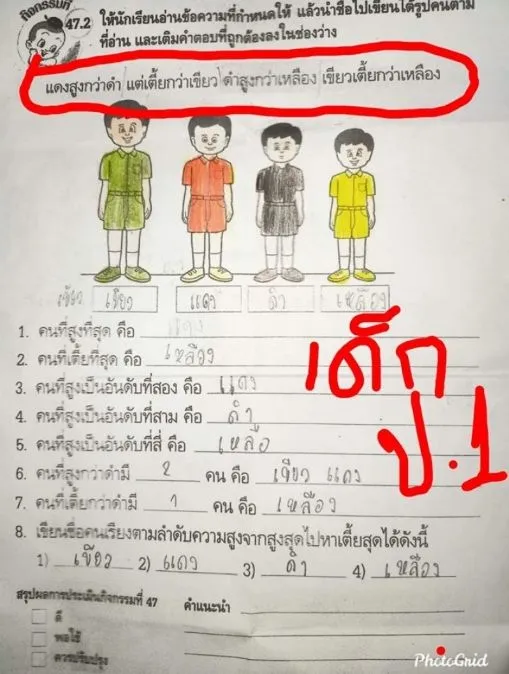 กิจกรรมที่
47.2 ให้นักเรียนอ่านข้อความที่กำหนดให้ แล้วนำชื่อไปเขียนใต้รูปคนตาม
ที่อ่าน และเติมคำตอบที่ถูกต้องลงในช่องว่าง
แดงสูงกว่าดำ แต่เตี้ยกว่าเขียว ดำสูงกว่าเหลือง เขียวเตี้ยกว่าเหลือง
เขียว เขียว แดง ดำ เหลือง
1. คนที่สูงที่สุด คือ
2. คนที่เตี้ยที่สุด คือ เหลือง
3. คนที่สูงเป็นอันดับที่สอง คือ แดง
4. คนที่สูงเป็นอันดับที่สาม คือ ดำ
5. คนที่สูงเป็นอันดับที่สี่ คือ เหลือ
6. คนที่สูงกว่าดำมี 2 คน คือ เขียว แดง
7. คนที่เตี้ยกว่าดำมี 1 คน คือ เหลือง
8. เขียนชื่อคนเรียงตามลำดับความสูงจากสูงสุดไปหาเตี้ยสุดได้ดังนี้
1) เขียว 2) แดง 3) ดำ 4) เหลือง
เด็ก
ป.1
สรุปผลการประเมินกิจกรรมที่ 47 คำแนะนำ
ดี
พอใช้
ควรปรับปรุง
PhotoGrid